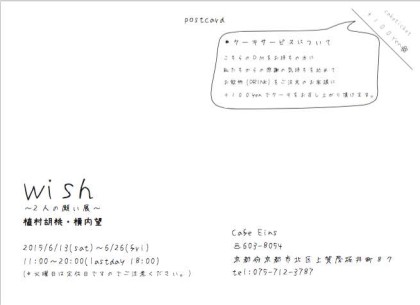 postcard
cake ticket
+100yen
* ケーキサービスについて
こちらのDMをお持ちの方に
私たちからの感謝の気持ちを込めて
お飲物 (DRINK) をご注文のお客様に
+100yenでケーキをお召し上がり頂けます。
wish
〜2人の願い展〜
植村胡桃・横内望
2015/6/13(sat)〜6/26(fri)
11:00〜20:00(lastday 18:00)
(*火曜日は定休日ですのでご注意ください。)
Cafe Eins
〒603-8054
京都府京都市北区上賀茂桜井町87
tel:075-712-3787